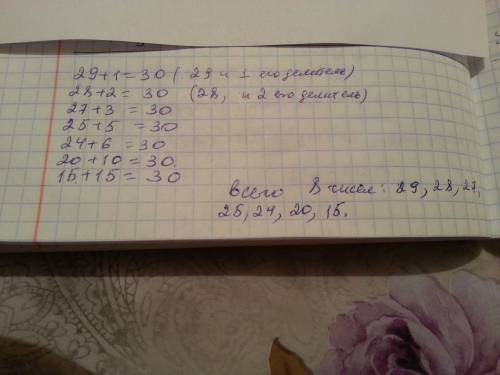 29+1=30 (29 и 1 его делитель)
28+2= 30 (28, и 2 его делитель)
27+3 = 30
25+5 = 30
24+6 =30
20+10=30.
15.+15= 30
Всего 8 чисел: 29, 28, 27,
25, 24, 20, 15.